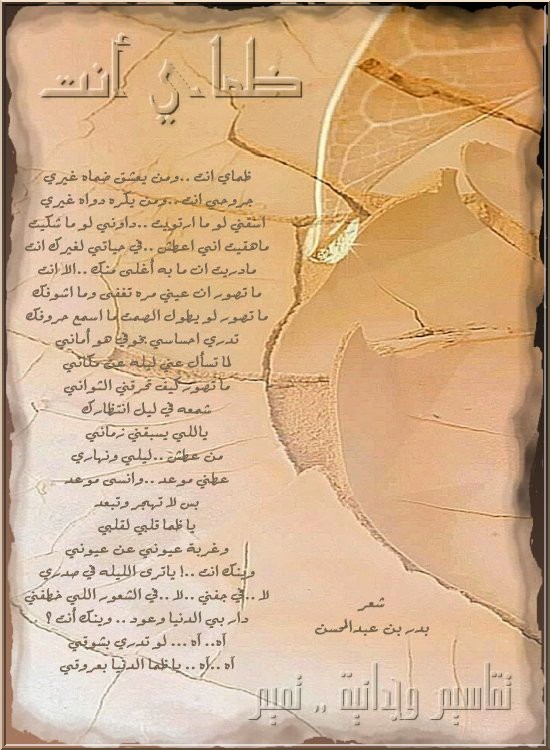 ظماي أنت
ظماي انت ..ومن يعشق ضماه غيري
جروحي انت ..ومن يكره دواه غيري
اسقني لو ما ارتويت ..داوني لو ما شكيت
ماهقيت اني اعطش ..في حياتي لغيرك انت
مادريت ان ما به أغلى منك ..الا انت
ما تصور ان عيني مره تغفى وما اشوفك
ما تصور لو يطول الصمت ما اسمع حروفك
تدري احساسي بخوفي هو أماني
لا تسأل عني ليله عن مكاني
ما تصور كيف تحرقني الثواني
شمعه في ليل انتظارك
ياللي يسبقني زماني
من عطش ..ليلي ونهاري
عطني موعد ..وانسى موعد
بس لا تهجر وتبعد
يا ظما قلبي لقلبي
وغربة عيوني عن عيوني
وينك انت ..! ياترى الليله في صدري
لا ..في جفني ..لا ..في الشعور اللي خطفني
دار بي الدنيا وعود ..وينك أنت ؟
آه.. آه ... لو تدري بشوقي
آه ..آه .. يا ظما الدنيا بعروقي
شعر
بدر بن عبدالمحسن
تقاسيم وجدانية .. تمير